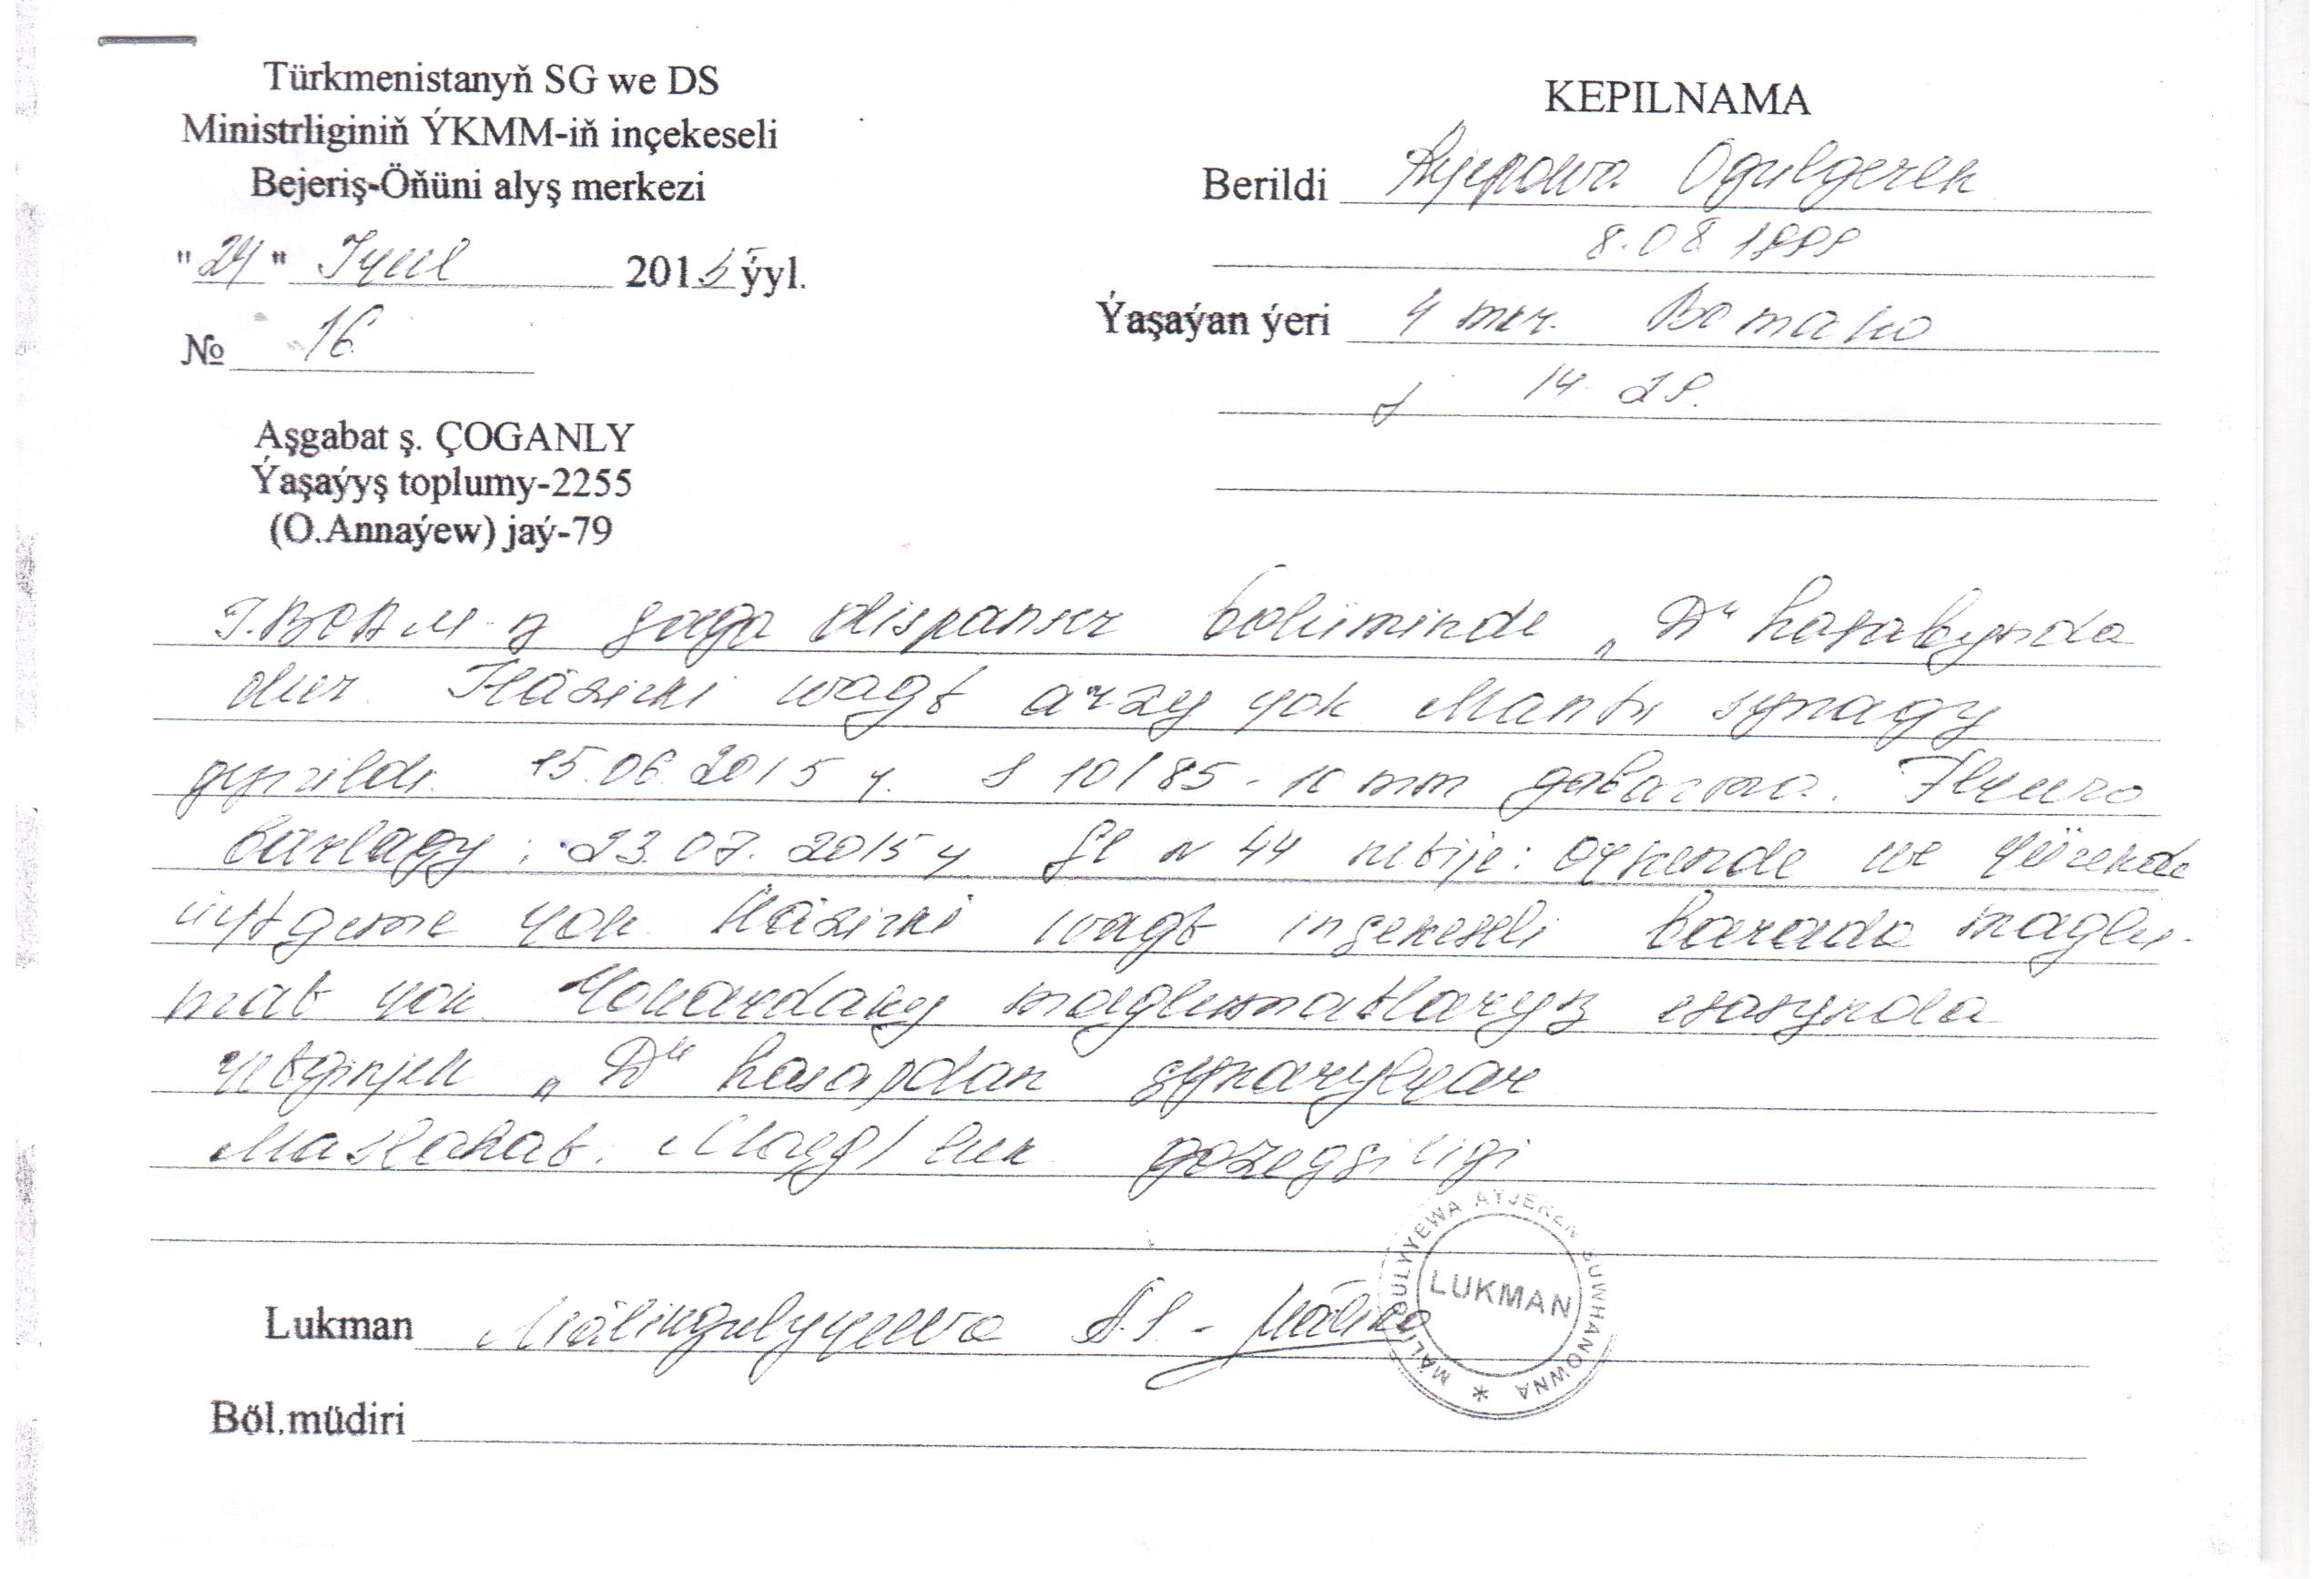 Türkmenistanyň SG we DS
Ministrliginiň ÝKMM-iň inçekeseli
Bejeriş-Öňüni alyş merkezi
"24" Iyul 2015 ýyl.
№ 16
Aşgabat ş. ÇOGANLY
Ýaşaýyş toplumy-2255
(O.Annaýew) jaý-79
KEPILNAMA
Berildi Rejepowa Ogulgerek
8.08 1998
Ýaşaýan ýeri 4 mkr.
14 - 28.
dispanser bölüminde „D“ hasabynda
dur. Häzirki wagt arzy ýok Mantu synagy
geçirildi. 15.06.2015 ý. S 10/85 - 10 mm gabarma. Flýuro
barlagy: 23.07.2015 ý fl N 44 netije: Öýkende we ýürekde
üýtgeme ýok. Häzirki wagt inçekeseli barada maglu-
mat ýok. Ýokardaky maglumatlaryň esasynda
ýetginjek „D“ hasapdan çykarylýar
Maslahat. gözegçiligi
Lukman Mäligulyýewa A.S.
MÄLIGULYÝEWA AÝJEREN SUWHANOWNA *
LUKMAN
Böl.müdiri